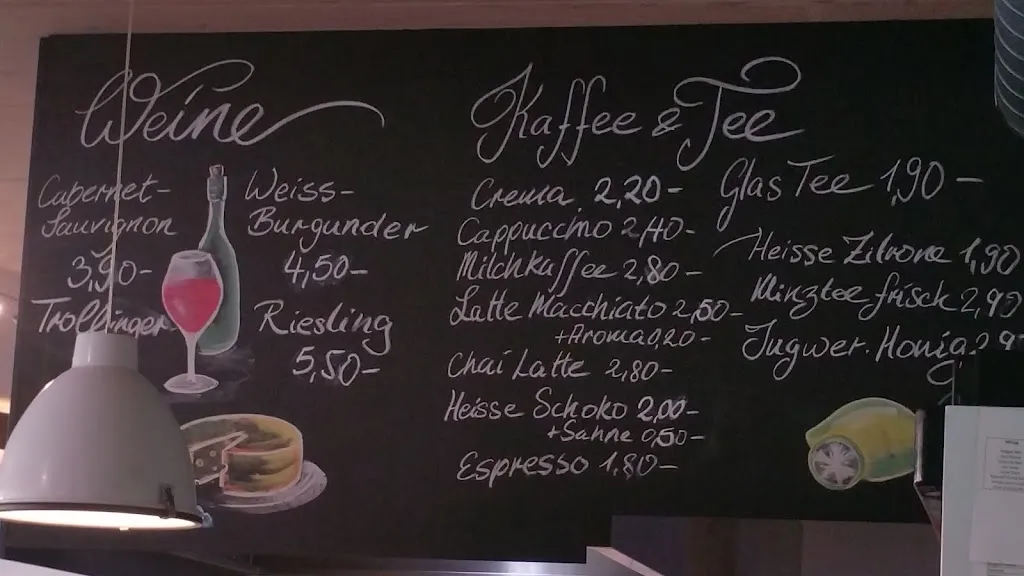 Weine
Cabernet-
Sauvignon
3,90-
Trollinger
Weiss-
Burgunder
4,50-
Riesling
5,50-
Kaffee & Tee
Crema 2,20-
Cappuccino 2,40-
Milchkaffee 2,80-
Latte Macchiato 2,50-
+Aroma 0,20-
Chai Latte 2,80-
Heisse Schoko 2,00-
+Sahne 0,50-
Espresso 1,80-
Glas Tee 1,90-
Heisse Zitrone 1,90
Minztee frisch 2,90
Ingwer. Honig